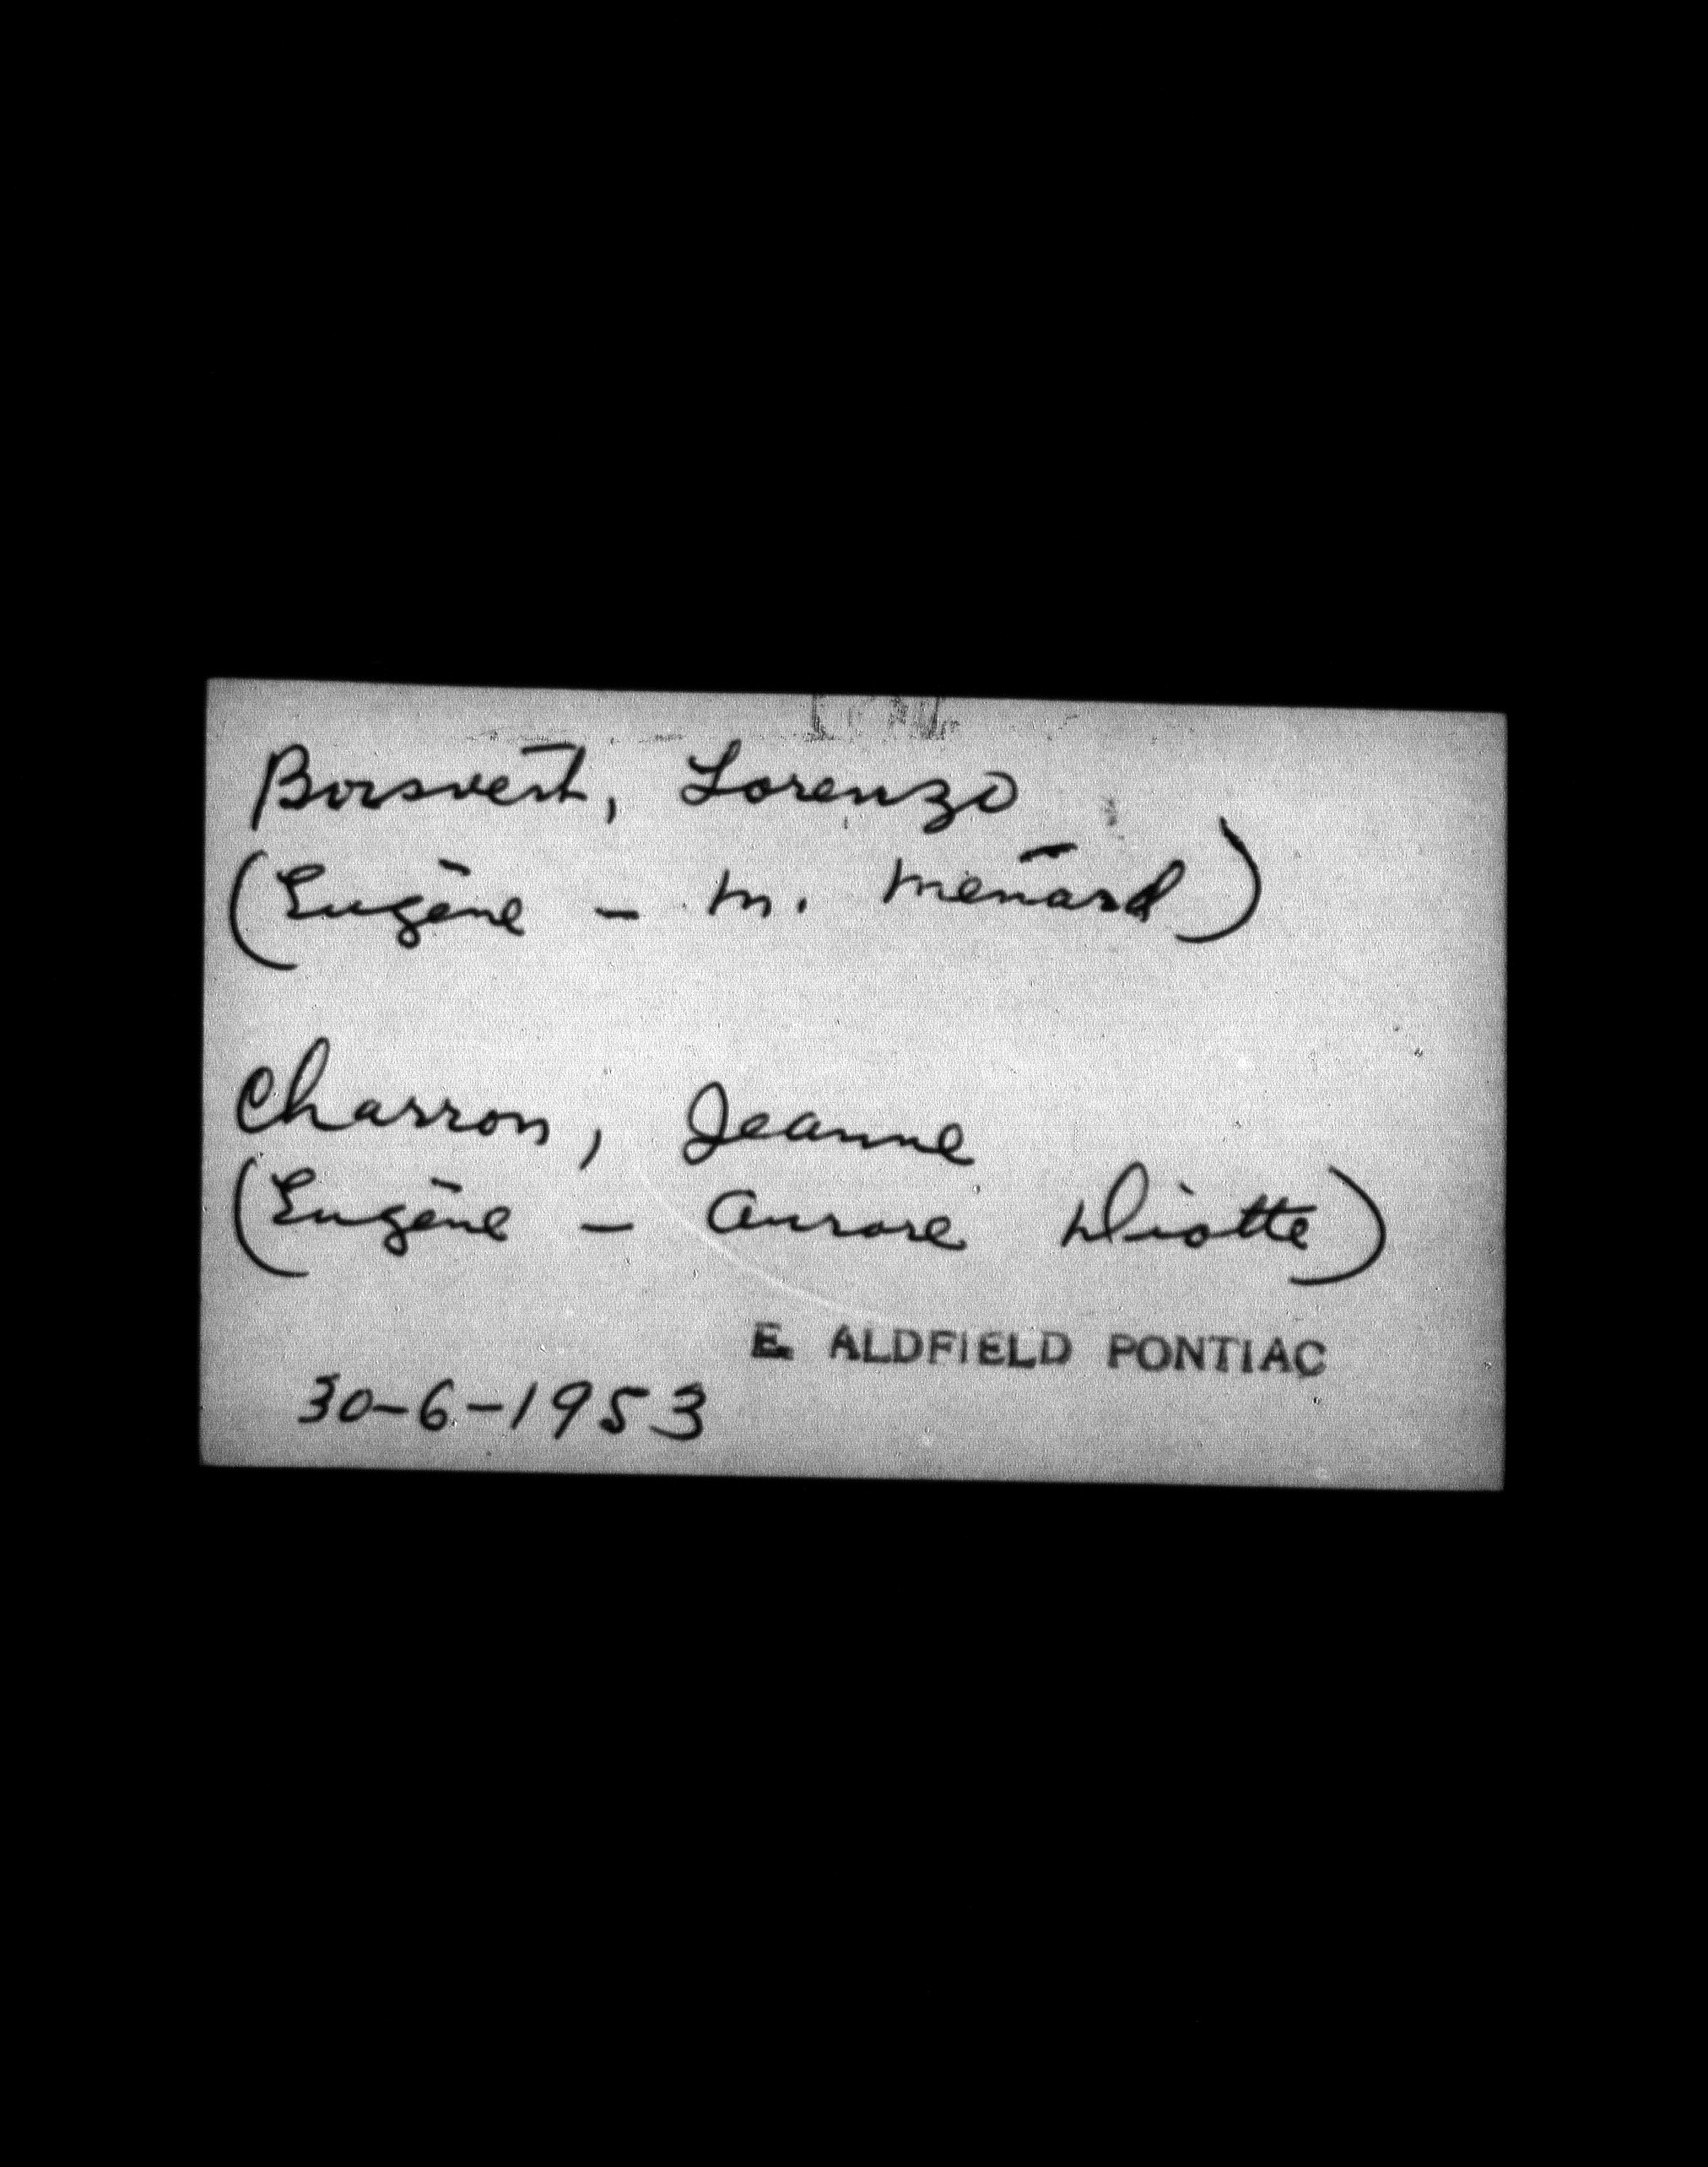 Boisvert, Lorenzo
(Eugène - M. Ménard)
Charron, Jeanne
(Eugène - Aurore Diotte)
E. ALDFIELD PONTIAC
30-6-1953